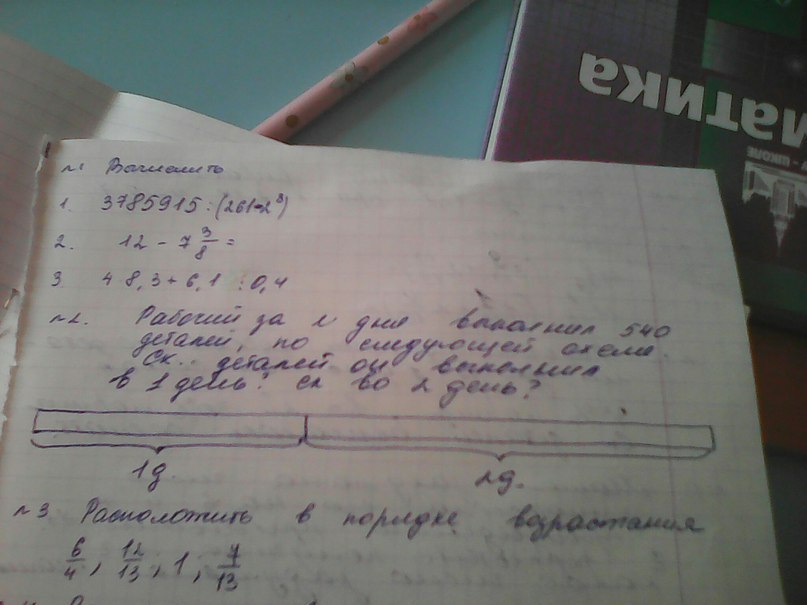 матика
школе
№1 Вычислить
1. 3785915 : (261-2³)
2. 12 - 7 3/8 =
3. 48,3 + 6,1 : 0,4
№2. Рабочий за 2 дня выполнил 540
деталей, по следующей схеме.
Ск.. деталей он выполнил
в 1 день? ск во 2 день?
1д. 2д.
№3 Расположить в порядке возрастания
6/4, 12/13, 1, 7/13